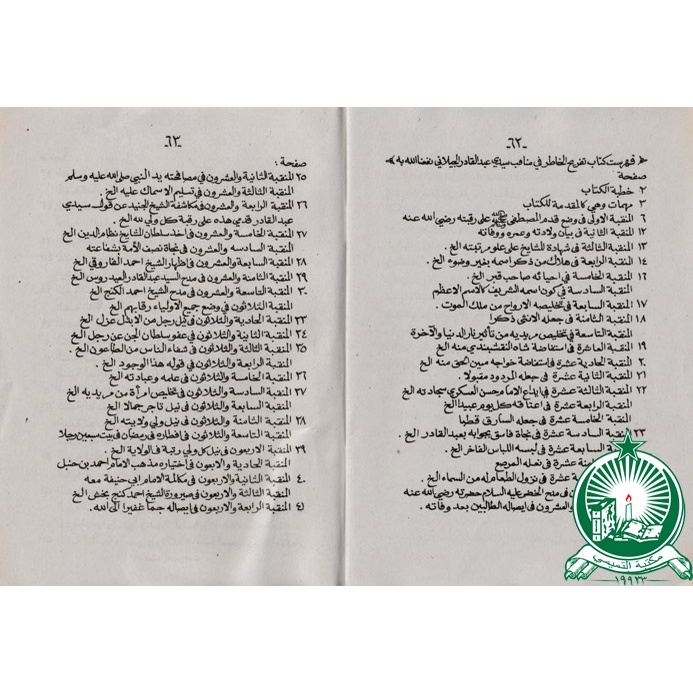 -٦٢-
﴿ فهرست كتاب تفريح الخاطر في مناقب سيدي عبد القادر الجيلاني نفعنا الله به ﴾
صفحة
٢ خطبة الكتاب
٣ مهمات وهي كالمقدمة للكتاب
٦ المنقبة الاولى في وضع قدم المصطفى ﷺ على رقبته رضي الله عنه
١٢ المنقبة الثانية في بيان ولادته وعمره ووفاته
١٣ المنقبة الثالثة في شهادة للشايخ على علو مرتبته الخ .
١٤ المنقبة الرابعة في هلاك من ذكر اسمه بغير وضوء الخ .
١٦ المنقبة الخامسة في احيائه صاحب قبر الخ .
المنقبة السادسة في كون اسمه الشريف كالاسم الاعظم
١٧ المنقبة السابعة في تخليصه الارواح من ملك الموت .
١٨ المنقبة الثامنة في جعله الانثى ذكرا
المنقبة التاسعة في تخليص مريديه من تأثير نار الدنيا والآخرة
١٩ المنقبة العاشرة في استفاضة شاه النقشبندي منه الخ
٢٠ المنقبة الحادية عشرة في استفاضة خواجه معين الحق منه الخ
٢١ المنقبة الثانية عشرة في جعله المردود مقبولا .
٢٢ المنقبة الثالثة عشرة في ايداع الامام حسن العسكري سجادته الخ
المنقبة الرابعة عشرة في اعتاقه كل يوم عبيدا الخ
المنقبة الخامسة عشرة في جعله السارق قطبا
٢٣ المنقبة السادسة عشرة في نجاة فاسق بجوابه بعبد القادر الخ .
عشرة في لبسه اللباس الفاخر الخ .
عشرة في نعله المرصع
عشرة في نزول الطعام له من السماء الخ .
في مدح الخضر عليه السلام حضرته رضي الله عنه
والعشرون في ايصاله الطالبين بعد وفاته .
-٦٣-
صفحة :
٢٥ المنقبة الثانية والعشرون في مصافحته يد النبي صلى الله عليه وسلم
المنقبة الثالثة والعشرون في تسليم الاسماك عليه الخ .
٢٦ المنقبة الرابعة والعشرون في مكاشفة الشيخ الجنيد عن قول سيدي
عبد القادر قدمي هذه على رقبة كل ولي الله الخ .
٢٧ المنقبة الخامسة والعشرون في اخذ سلطان المشايخ نظام الدين الخ
المنقبة السادسه والعشرون في نجاة نصف الأمة بشفاعته
٢٨ المنقبة السابعة والعشرون في اظهار الشيخ احمد الفاروقي الخ
٢٩ المنقبة الثامنة والعشرون في مدح السيد عبد القادر العيدروس الخ
٣٠ المنقبة التاسعة والعشرون في مدح الشيخ احمد الكنج الخ
المنقبة الثلاثون في وضع جميع الاولياء رقابهم الخ
٣٣ المنقبة الحادية والثلاثون في نيل رجل من الابدال عزل الخ
٣٤ المنقبة الثانية والثلاثون في عفو سلطان الجن عن رجل الخ
٣٥ المنقبة الثالثة والثلاثون في شفاء الناس من الطاعون الخ
المنقبة الرابعة والثلاثون في قوله هذا الوجود الخ
٣٦ المنقبة الخامسة والثلاثون في علمه وعبادته الخ
٣٧ المنقبة السادسة والثلاثون في تخليص امرأة من مريديه الخ
المنقبة السابعة والثلاثون في نيل تاجر جمالا الخ
٣٨ المنقبة الثامنة والثلاثون في نيل ولي ولايته الخ
المنقبة التاسعة والثلاثون في افطاره في رمضان في بيت سبعين رجلا
٣٩ المنقبة الاربعون في نيل كل ولي رتبة في الولاية الخ .
المنقبة الحادية والاربعون في اختياره مذهب الامام احمد بن حنبل
٤٠ المنقبة الثانية والاربعون في مكالمة الامام ابي حنيفة معه
المنقبة الثالثة والاربعون في صيرورة الشيخ احمد كنج بخش الخ
٤١ المنقبة الرابعة والاربعون في ايصاله جما غفيرا الى الله .
مكتبة التميمي
١٩٩٢٣